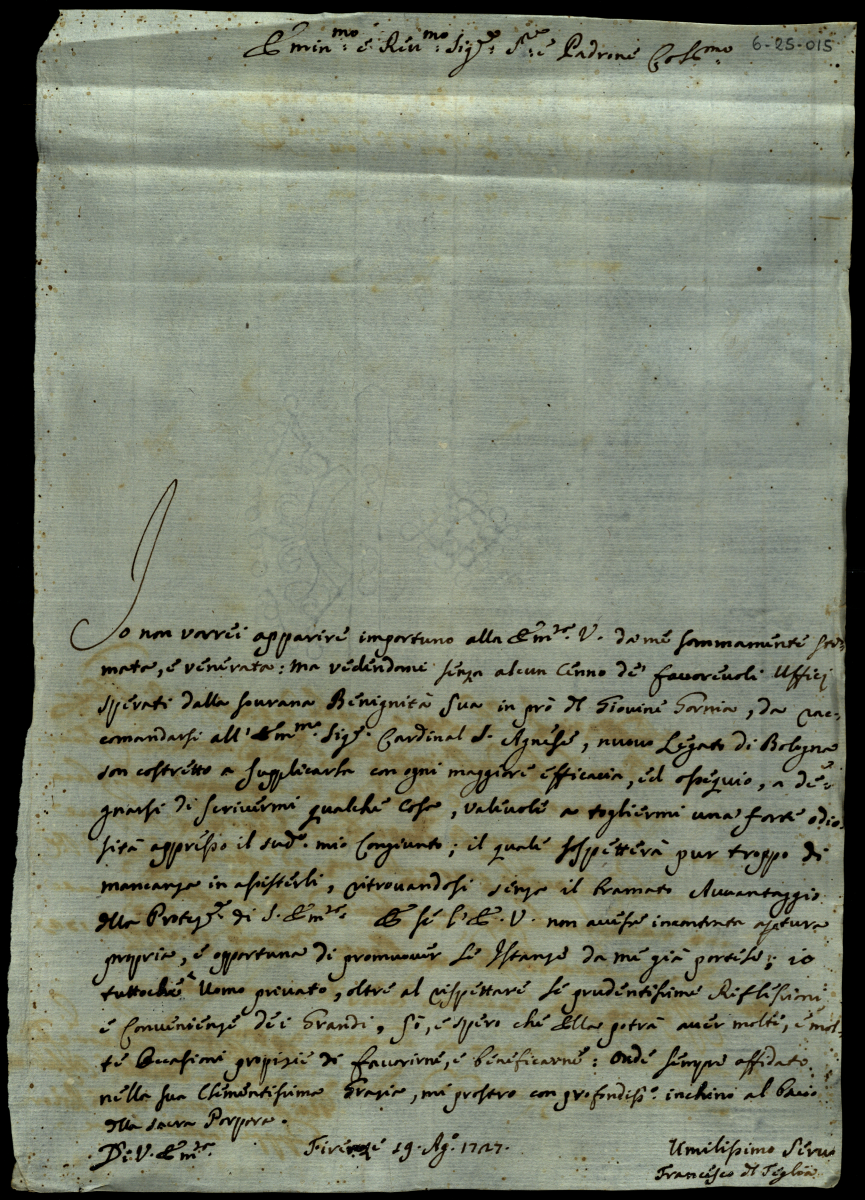 Emin.mo e Rev.mo Sig.re S.re e Padrone Col.mo
6-25-015
Io non vorrei apparire importuno alla Em.za V. da me sommamente sti-
mata, e venerata: ma vedendomi senza alcun Cenno de' favorevoli Uffici
sperati dalla sovrana Benignità Sua in prò del Giovine Gornia, da rac-
comandarsi all' Em.mo Sig.r Cardinal S. Agnese, nuovo Legato di Bologna
son costretto a supplicarla con ogni maggiore efficacia, ed ossequio, a de-
gnarsi di scrivermi qualche cosa, valevole a togliermi una forte odio-
sità appresso il sud.o mio Congiunto; il quale sospetterà pur troppo di
mancanza in assisterli, ritrovandosi senza il bramato Avvantaggio
della Protez.e di S. Em.za E se l'E. V. non avesse incontrata apertura
propria, e opportuna di promuover le Istanze da me già portese; io
tuttochè Uomo privato, oltre al rispettare le prudentissime Riflessioni
e Convenienze dei Grandi, sò, e spero che Ella potrà aver molte, e mol-
te Occasioni propizie di favorirne, e beneficarne: Onde sempre affidato
nella sua Clementissima Grazia, mi prostro con profondiss.o inchino al bacio
della sacra Porpora.
Di V. Em.za Firenze 19. Ag.o 1727. Umilissimo Servo
Francesco del Teglia